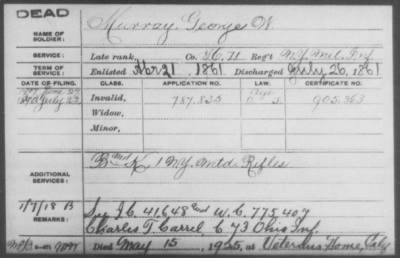 DEAD
NAME OF SOLDIER: Murray, George W.
SERVICE: Late rank, Co. H. 71 Reg't N.Y. Mil. Inf.
TERM OF SERVICE: Enlisted Apr 21, 1861. Discharged July 26, 1861
DATE OF FILING. CLASS. APPLICATION NO. LAW. CERTIFICATE NO.
July 22 Invalid, 787.835 905.363
Widow,
Minor,
ADDITIONAL SERVICES: B and K 1 N.Y. Mtd. Rifles
1/7/18 B
REMARKS: See I.C. 41648 and W.C. 775407
Charles T. Carrel C 73 Ohio Inf.
Died May 15, 1925, at Veterans Home, Caly